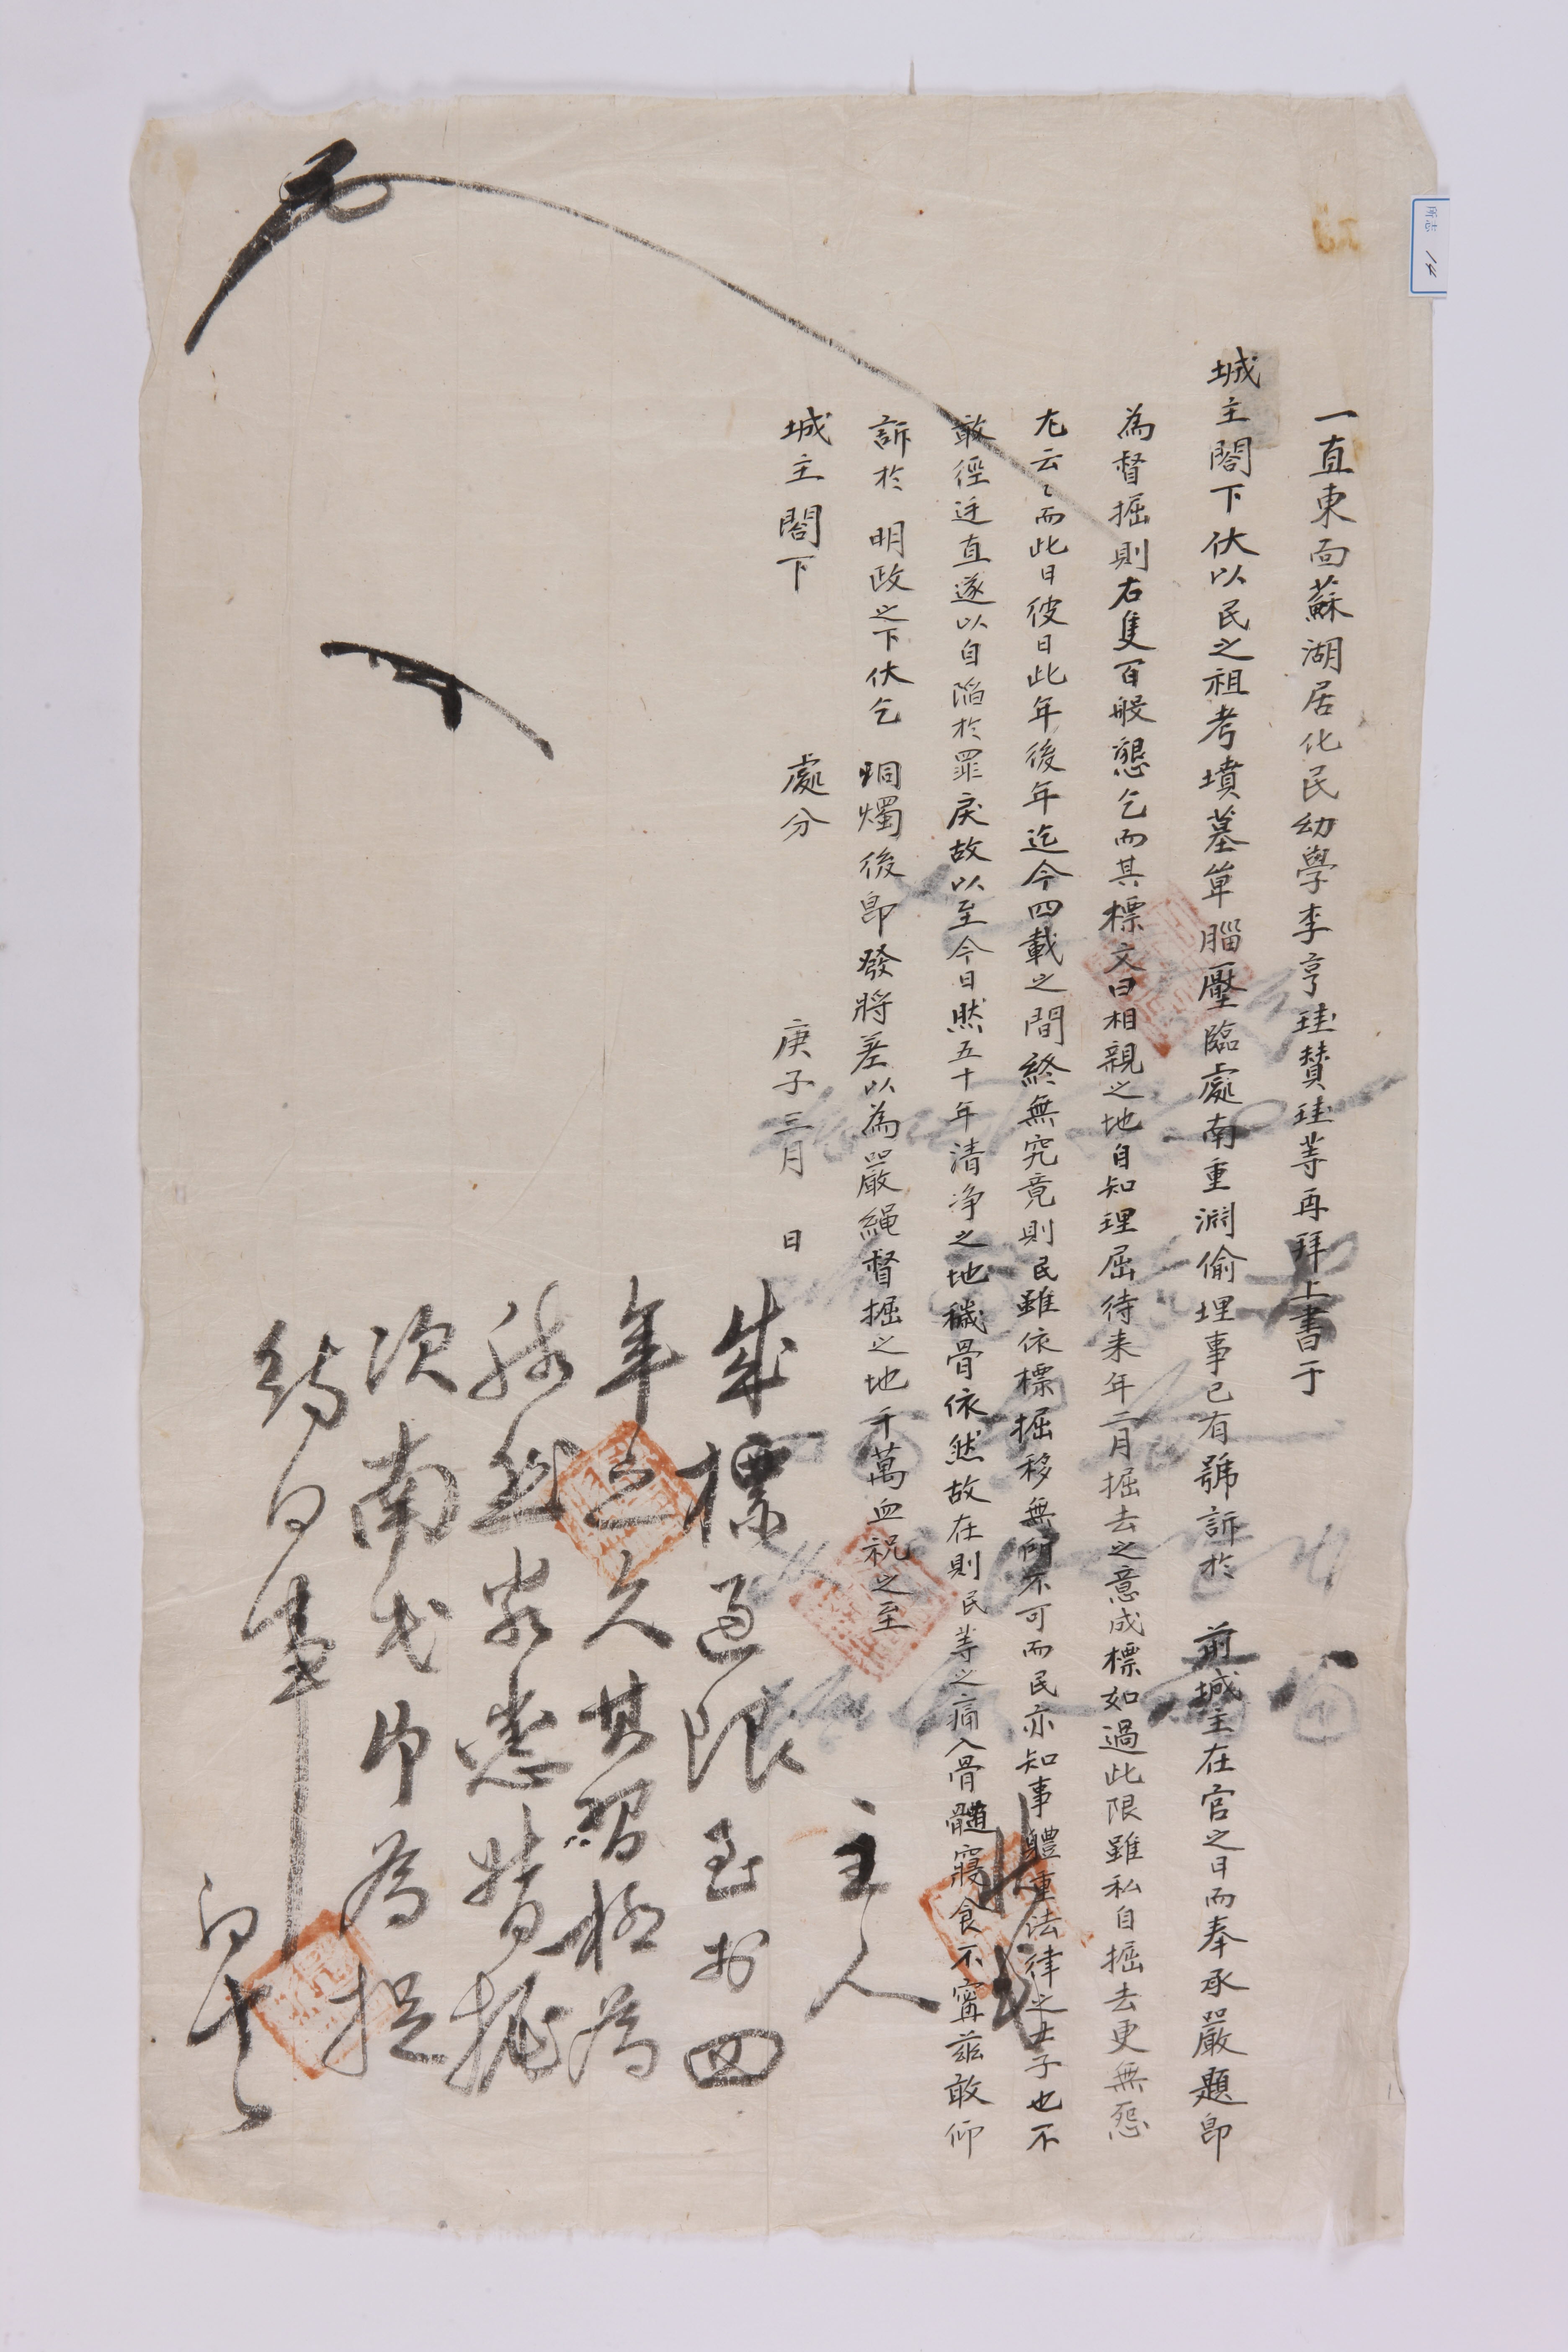 一直東面蘇湖居化民幼學李亨珪贊珪等再拜上書于
城主閤下伏以民之祖考墳墓單腦壓臨處南重淵偷埋事已有號訴於 前城主在官之日而奉承嚴題卽
為督掘則右隻百般懇乞而其標文曰相親之地自知理屈待来年二月掘去之意成標如過此限雖私自掘去更無怨
尤云云而此日彼日此年後年迄今四載之間終無究竟則民雖依標掘移無所不可而民亦知事軆重法律之士子也不
敢徑迋直遂以自陷於罪戾故以至今日然五十年清浄之地穢骨依然故在則民等之痛入骨髓寢食不寗茲敢仰
訴於 明政之下伏乞 烱燭後卽發將差以為嚴繩督掘之地千萬血祝之至
城主閤下 處分 庚子三月 日
主人
成標過限至於四
年之久其習極為
次南戈卽為捉
待向事
所志 14